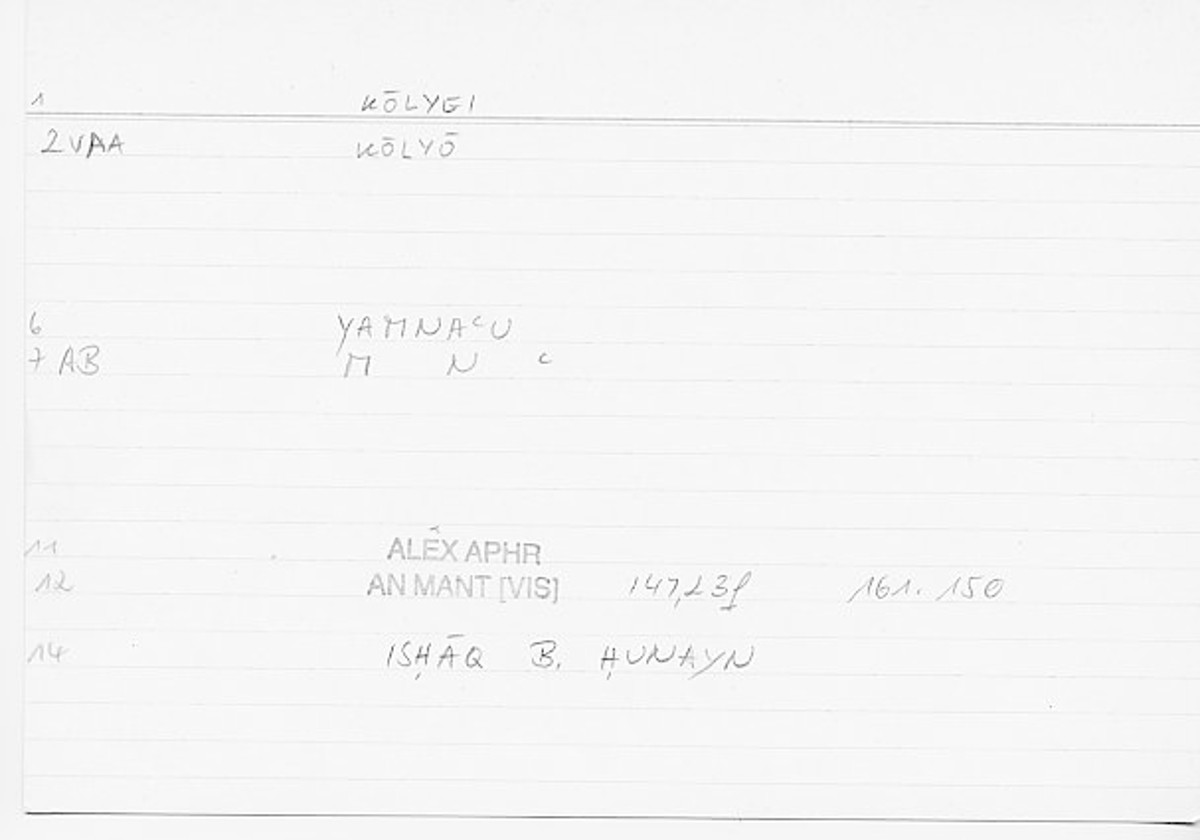 1 KŌLYEI
2 VAA KŌLYŌ
6 YAMNAᶜU
7 AB M N ᶜ
11 ALEX APHR
12 AN MANT [VIS] 147,23f 161.150
14 ISḤĀQ B. ḤUNAYN